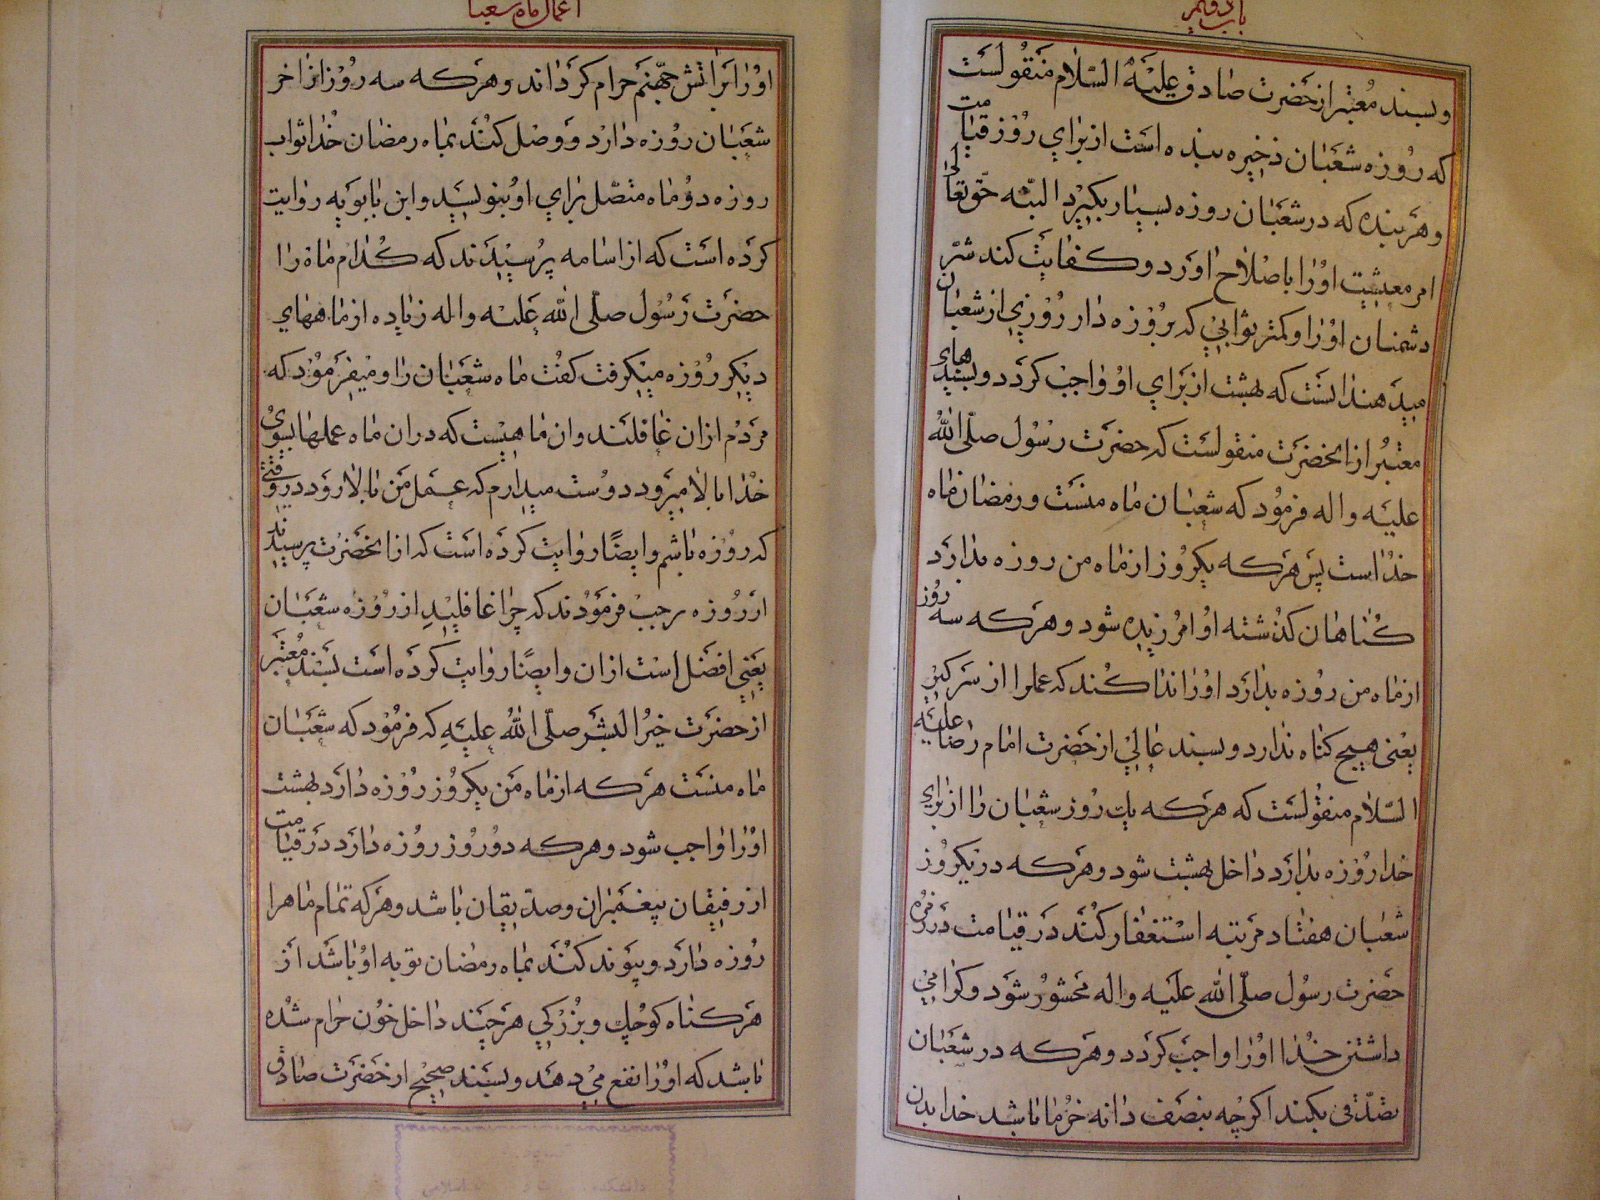 باب دویم
وبسند معتبر از حضرت صادق علیه السلام منقولست
که روزه شعبان ذخیره بنده است از برای روز قیامت
و هر بنده که در شعبان روزه بسیار بگیرد البته حق تعالی
امر معیشت او را باصلاح اورد و کفایت کند شر
دشمنان او را و کمتر ثوابی که بروزه دار روزی از شعبان
میدهند انست که بهشت از برای او واجب کردد و بسندهای
معتبر از انحضرت منقولست که حضرت رسول صلی الله
علیه و اله فرمود که شعبان ماه منست و رمضان ماه
خداست پس هرکه یکروز از ماه من روزه بدارد
کناهان کذشته او امرزیده شود و هرکه سه روز
از ماه من روزه بدارد او را ندا کنند که عملرا از سر کیر
یعنی هیچ کناه ندارد و بسند عالی از حضرت امام رضا علیه
السلام منقولست که هرکه یک روز شعبان را از برای
خدا روزه بدارد داخل بهشت شود و هرکه در یکروز
شعبان هفتاد مرتبه استغفار کند در قیامت در زمره
حضرت رسول صلی الله علیه و اله محشور شود و کرامی
داشتن خدا او را واجب کردد و هرکه در شعبان
تصدقی بکند اکرچه بنصف دانه خرما باشد خدا بدن
اعمال ماه شعبان
او را بر اتش جهنم حرام کرداند و هرکه سه روز از اخر
شعبان روزه دارد و وصل کند بماه رمضان خدا ثواب
روزه دو ماه متصل برای او بنویسد و ابن بابویه روایت
کرده است که از اسامه پرسیدند که کدام ماه را
حضرت رسول صلی الله علیه و اله زیاده از ماههای
دیکر روزه میکرفت کفت ماه شعبان را و میفرمود که
مردم ازان غافلند و ان ماهیست که دران ماه عملها بسوی
خدا بالا میرود دوست میدارم که عمل من بالا رود در وقتی
که روزه باشم و ایضا روایت کرده است که از انحضرت پرسیدند
از روزه رجب فرمودند که چرا غافلید از روزه شعبان
یعنی افضل است ازان و ایضا روایت کرده است بسند معتبر
از حضرت خیر البشر صلی الله علیه که فرمود که شعبان
ماه منست هرکه از ماه من یکروز روزه دارد بهشت
او را واجب شود و هرکه دو روز روزه دارد در قیامت
از رفیقان پیغمبران و صدیقان باشد و هرکه تمام ماهرا
روزه دارد و پیوند کند بماه رمضان توبه او باشد از
هر کناه کوچک و بزرکی هرچند داخل خون حرام شده
باشد که او را نفع می دهد و بسند صحیح از حضرت صادق